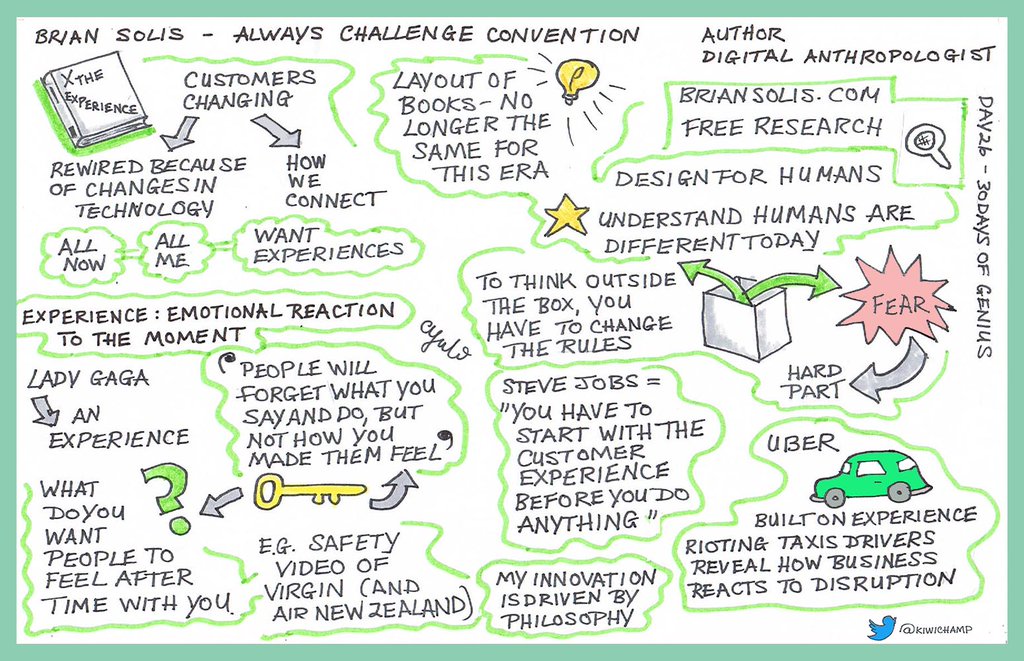 BRIAN SOLIS - ALWAYS CHALLENGE CONVENTION
AUTHOR
DIGITAL ANTHROPOLOGIST
X-THE
EXPERIENCE
CUSTOMERS
CHANGING
REWIRED BECAUSE
OF CHANGES IN
TECHNOLOGY
HOW
WE
CONNECT
ALL
NOW
ALL
ME
WANT
EXPERIENCES
LAYOUT OF
BOOKS - NO
LONGER THE
SAME FOR
THIS ERA
BRIANSOLIS.COM
FREE RESEARCH
#
DESIGN FOR HUMANS
UNDERSTAND HUMANS ARE
DIFFERENT TODAY
DAY 26 - 30 DAYS OF GENIUS
EXPERIENCE: EMOTIONAL REACTION
TO THE MOMENT
LADY GAGA
AN
EXPERIENCE
"PEOPLE WILL
FORGET WHAT YOU
SAY AND DO, BUT
NOT HOW YOU
MADE THEM FEEL"
WHAT
DO YOU
WANT
PEOPLE TO
FEEL AFTER
TIME WITH YOU.
?
E.G. SAFETY
VIDEO OF
VIRGIN (AND
AIR NEW ZEALAND)
TO THINK OUTSIDE
THE BOX, YOU
HAVE TO CHANGE
THE RULES
FEAR
HARD
PART
STEVE JOBS =
"YOU HAVE TO
START WITH THE
CUSTOMER
EXPERIENCE
BEFORE YOU DO
ANYTHING"
MY INNOVATION
IS DRIVEN BY
PHILOSOPHY
UBER
BUILT ON EXPERIENCE
RIOTING TAXIS DRIVERS
REVEAL HOW BUSINESS
REACTS TO DISRUPTION
@KIWICHAMP